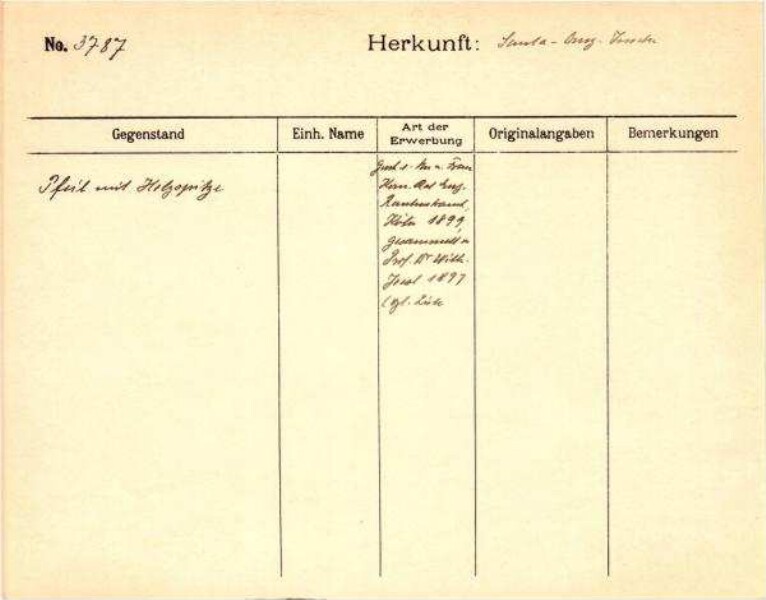 No. 3787
Herkunft: Santa-Cruz-Inseln
Gegenstand
Einh. Name
Art der
Erwerbung
Originalangaben
Bemerkungen
Pfeil mit Holzspitze
Frau
Eug.
Rautenstrauch,
Köln 1899
gesammelt v.
Prof. Dr Wilh.
Joest 1897
(vgl. Liste